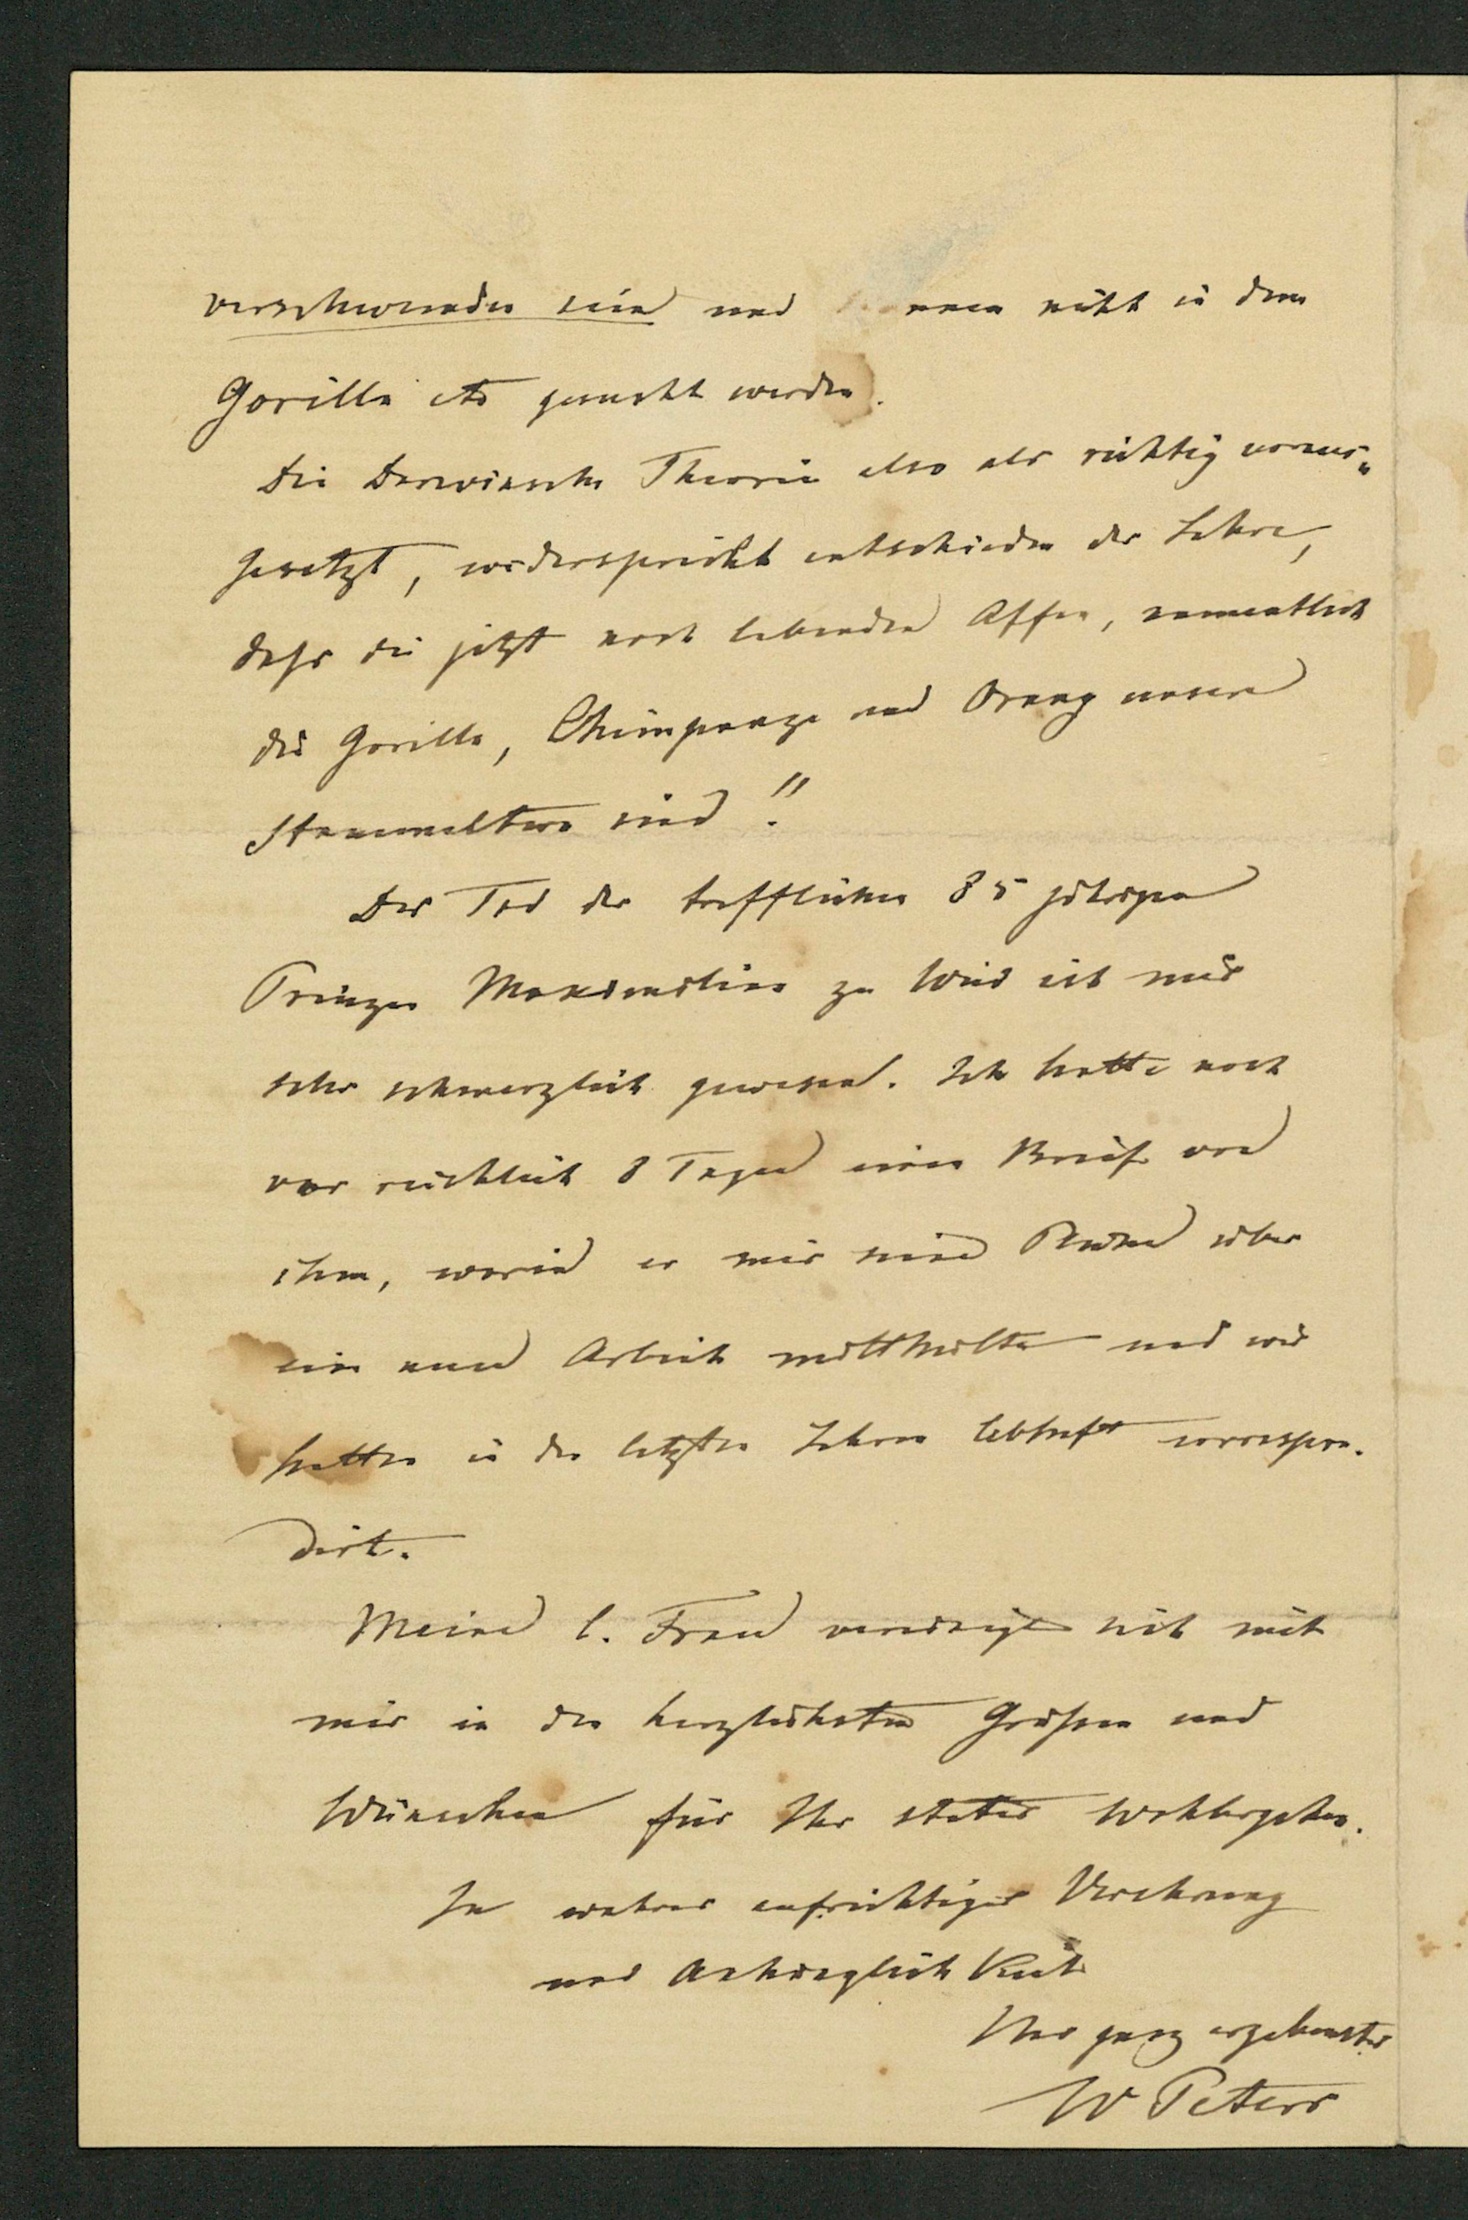 verschwunden sein und können nicht in dem
Gorilla etc gesucht werden.
Die Darwinsche Theorie also als richtig voraus„
gesetzt, widerspricht entschieden der Lehre,
daſs die jetzt noch lebenden Affen, namentlich
die Gorilla, Chimpanze und Orang unsere
Stammeltern sind!!
Der Tod des trefflichen 85 jährigen
Prinzen Maximilian zu Wied ist mir
sehr schmerzlich gewesen. Ich hatte noch
vor reichlich 8 Tagen einen Brief von
ihm, worin er mir seine Pläne über
eine neue Arbeit mittheilte und wir
hatten in den letzten Jahren lebhaft correspon-
dirt.
Meine l. Frau vereinigt sich mit
mir in den herzlichsten Grüſsen und
Wünschen für Ihr stetes Wohlergehen.
In wahrer aufrichtiger Verehrung
und Anhänglichkeit
Ihr ganz ergebenster
W Peters